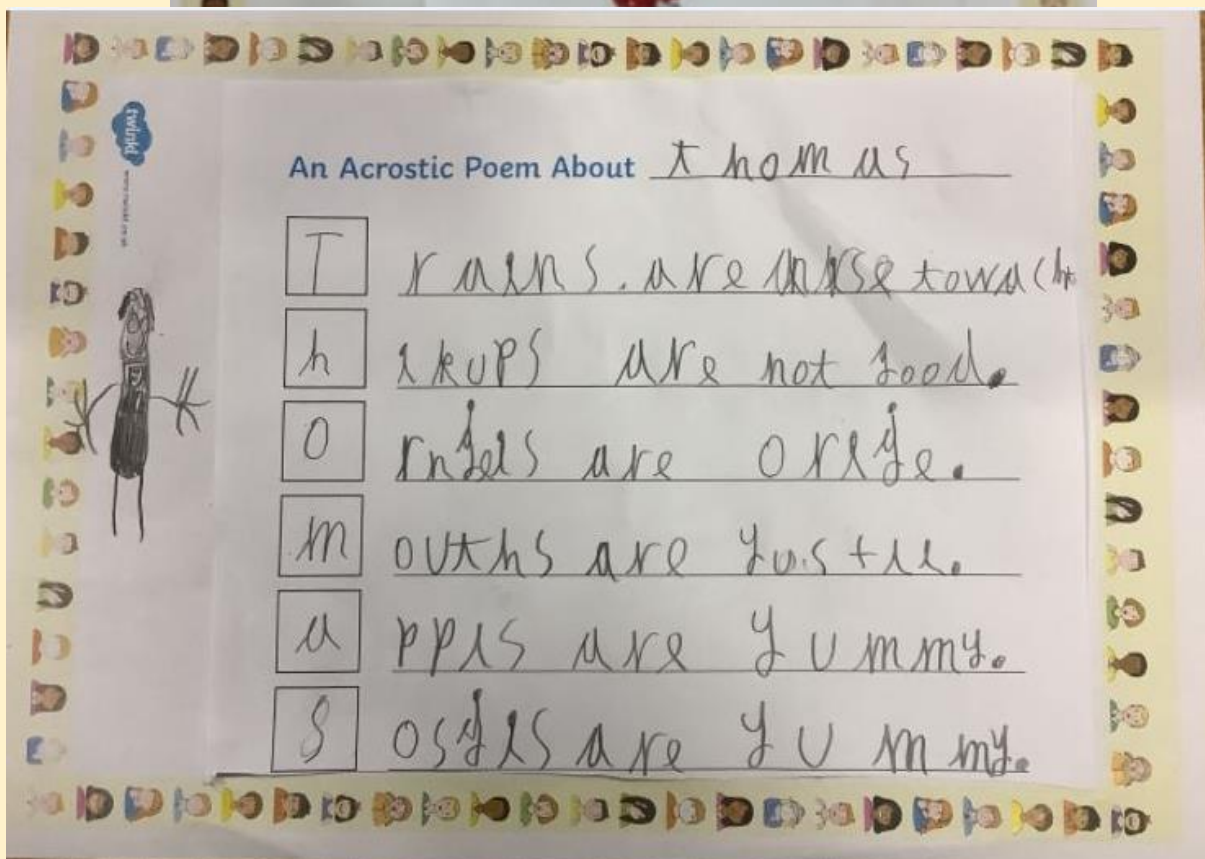 twinkl
An Acrostic Poem About thomas
T rains. are to wach
h ikups are not good.
O rngeis are orige.
m ouths are
a ppis are yummy.
S osgis are yummy.